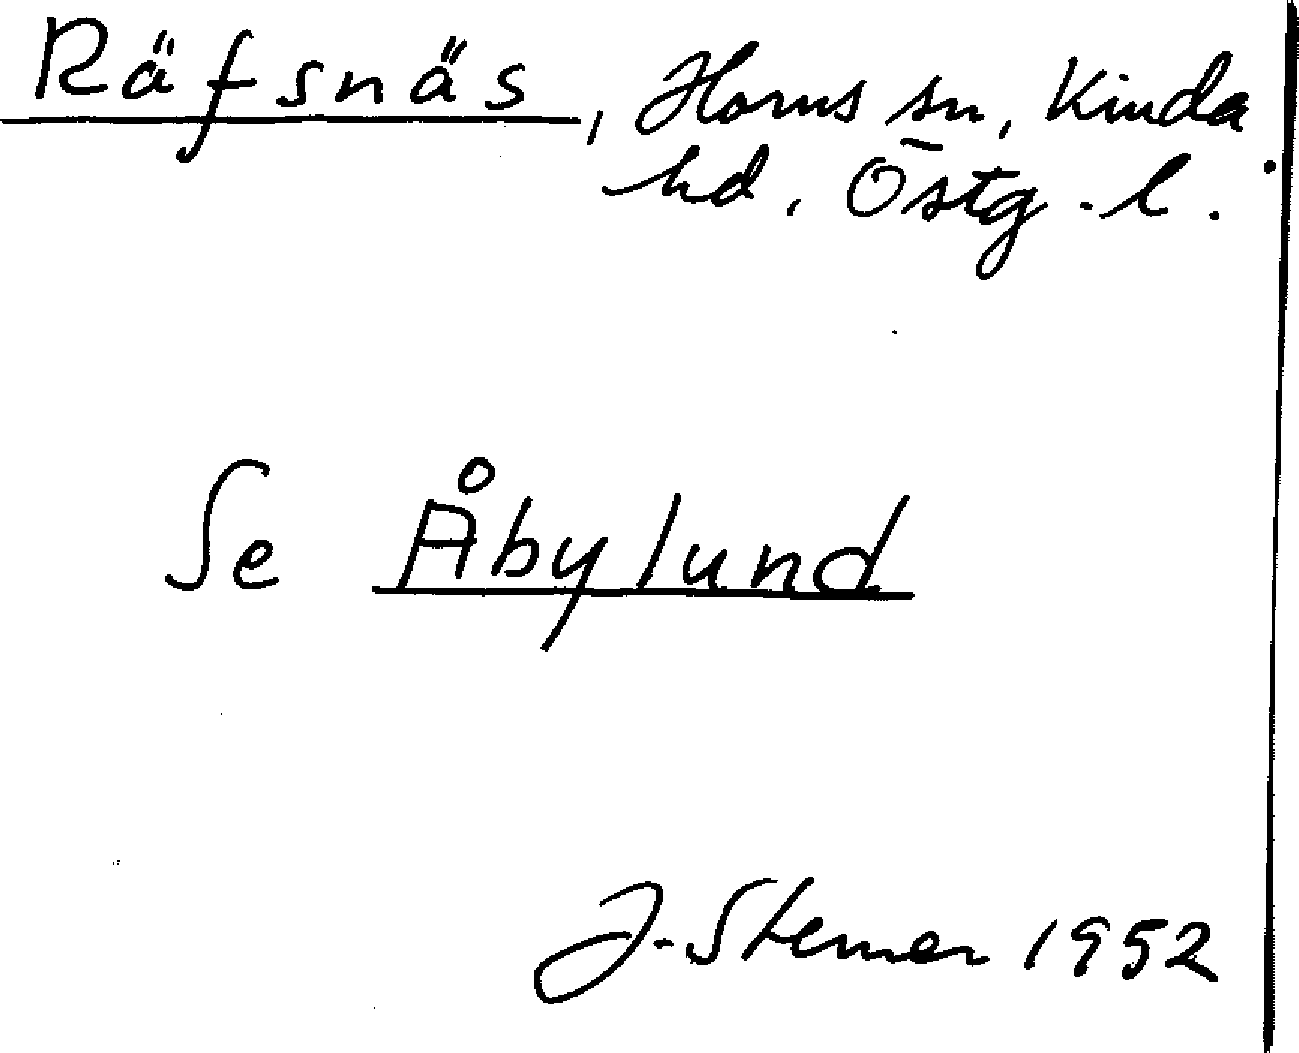 Räfsnäs, Horns sn, Kinda
hd, Östg. l.
Se Åbylund
J. Sterner 1952